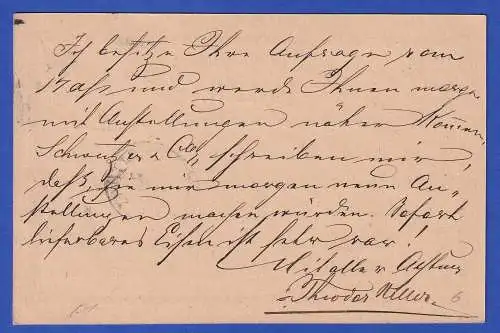 Ich besitze Ihre Anfrage vom
17 ds und werde Ihnen morgen
mit Anstellungen näher kommen.
Schwutzer & Co schreiben mir,
daß sie mir morgen neue An-
stellungen machen würden. Sofort
lieferbares Eisen ist sehr rar!
Mit aller Achtung
Theodor
6